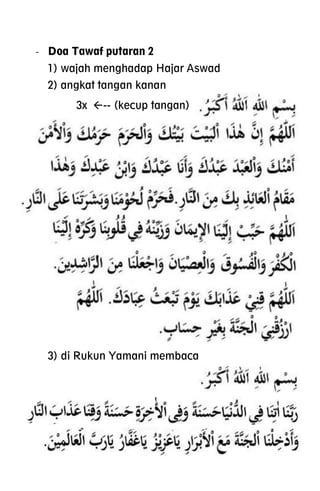 - Doa Tawaf putaran 2
1) wajah menghadap Hajar Aswad
2) angkat tangan kanan
3x <-- (kecup tangan) بِسْمِ اللهِ اَللهُ أَكْبَرُ.
اَللّٰهُمَّ إِنَّ هٰذَا الْبَيْتَ بَيْتُكَ وَالْحَرَمَ حَرَمُكَ وَالْأَمْنَ
أَمْنُكَ وَالْعَبْدَ عَبْدُكَ وَأَنَا عَبْدُكَ وَابْنُ عَبْدِكَ وَهٰذَا
مَقَامُ الْعَائِذِ بِكَ مِنَ النَّارِ. فَحَرِّمْ لُحُوْمَنَا وَبَشَرَتَنَا عَلَى النَّارِ.
اَللّٰهُمَّ حَبِّبْ إِلَيْنَا الْإِيمَانَ وَزَيِّنْهُ فِي قُلُوبِنَا وَكَرِّهْ إِلَيْنَا
الْكُفْرَ وَالْفُسُوقَ وَالْعِصْيَانَ وَاجْعَلْنَا مِنَ الرَّاشِدِينَ.
اَللّٰهُمَّ قِنِيْ عَذَابَكَ يَوْمَ تَبْعَثُ عِبَادَكَ. اَللّٰهُمَّ
ارْزُقْنِيَ الْجَنَّةَ بِغَيْرِ حِسَابٍ.
3) di Rukun Yamani membaca
بِسْمِ اللهِ اَللهُ أَكْبَرُ.
رَبَّنَا اٰتِنَا فِي الدُّنْيَا حَسَنَةً وَفِي الْأٰخِرَةِ حَسَنَةً وَقِنَا عَذَابَ النَّارِ
وَأَدْخِلْنَا الْجَنَّةَ مَعَ الْأَبْرَارِ يَا عَزِيْزُ يَا غَفَّارُ يَارَبَّ الْعَالَمِيْنَ.